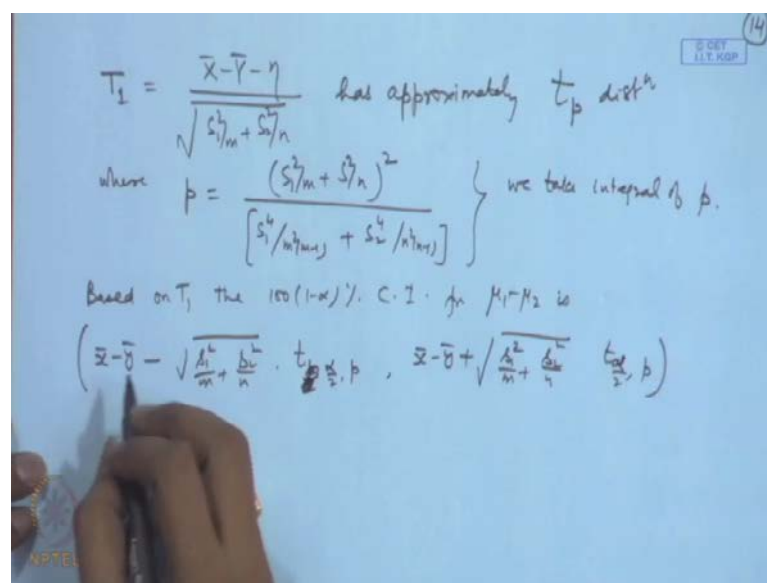 14
© CET
I.I.T. KGP
T₁ = (X̄ - Ȳ - η) / √(S₁²/m + S₂²/n) has approximately t_p distⁿ
where p = (S₁²/m + S²/n)² / [S₁⁴/m²(m-1) + S₂⁴/n²(n-1)] } we take integral of p.
Based on T₁ the 100(1-α)% C.I. for μ₁-μ₂ is
(x̄-ȳ - √(s₁²/m + s₂²/n) · t_{α/2, p} , x̄-ȳ + √(s₁²/m + s₂²/n) t_{α/2, p})
NPTEL